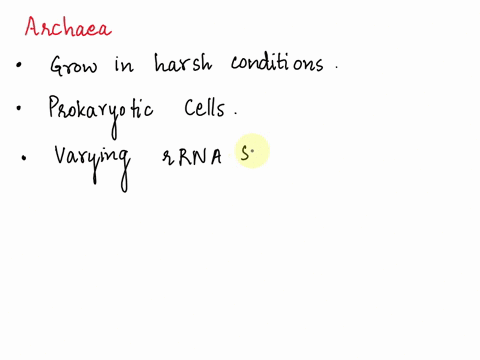 Archaea
• Grow in harsh conditions.
• Prokaryotic Cells.
• Varying rRNA s